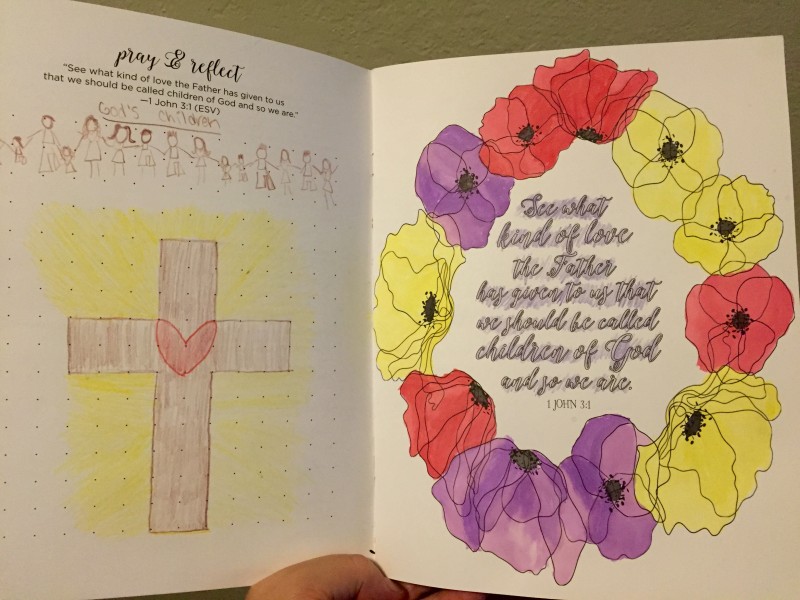 pray & reflect
"See what kind of love the Father has given to us
that we should be called children of God and so we are."
—1 John 3:1 (ESV)
God's children
See what
kind of love
the Father
has given to us that
we should be called
children of God
and so we are.
1 JOHN 3:1